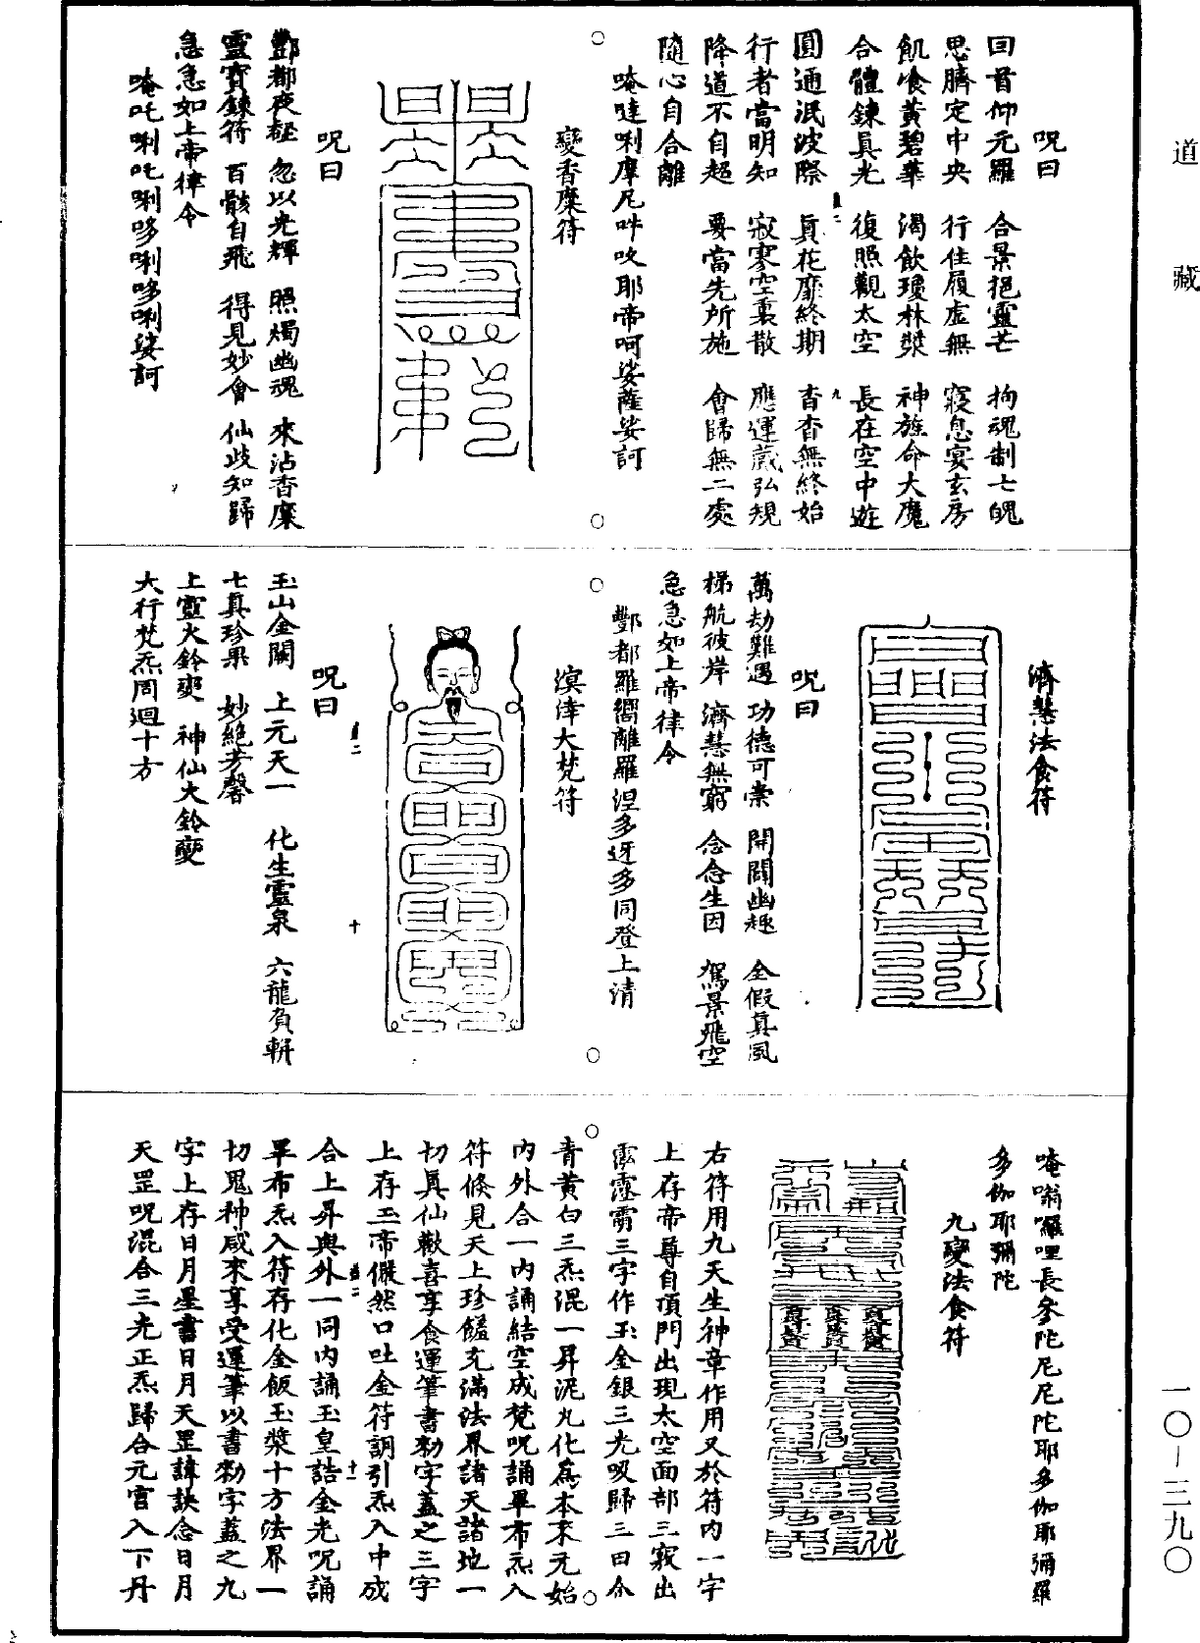 道藏
呪曰
回首仰元羅 合景挹靈芒 拘魂制七魄
思臍定中央 行住履虛無 寢息宴玄房
飢飡黃碧華 渴飲瓊林漿 神旌命大魔
合體鍊真光 復照觀太空 長在空中遊
圓通泯波際 真花靡終期 杳杳無終始
行者當明知 寂寥空裏散 應運葳弘規
降道不自超 要當先所施 會歸無二處
隨心自合離
唵噠唎摩尼吽㕮耶帝呵娑薩娑訶
變香糜符
呪曰
酆都夜壑 忽以光輝 照燭幽魂 來沾香糜
靈寶鍊符 百骸自飛 得見妙會 仙歧知歸
急急如上帝律令
唵吒唎吒唎哆唎哆唎娑訶
濟慧法食符
呪曰
萬劫難遇 功德可崇 開闡幽趣 全假真風
梯航彼岸 濟慧無窮 念念生因 駕景飛空
急急如上帝律令
酆都羅嚮離羅涅多迓多同登上清
溟涬大梵符
呪曰
玉山金闕 上元天一 化生靈泉 六龍負輧
七真珍果 妙絕芳馨
上靈火鈴奭 神仙大鈴變
大行梵炁周迴十方
唵嗡囉哩長參陀尼尼陀耶多伽耶彌羅
多伽耶彌陀
九變法食符
右符用九天生神章作用又於符內一字
上存帝尊自頂門出現太空面部三竅出
三字作玉金銀三光吸歸三田合
青黃白三炁混一昇泥丸化爲本來元始
內外合一內誦結空成梵呪誦畢布炁入
符倏見天上珍饈充滿法界諸天諸地一
切真仙歡喜享食運筆書勑字蓋之三字
上存玉帝儼然口吐金符詞引炁入中成
合上昇與外一同內誦玉皇誥金光呪誦
畢布炁入符存化金飯玉漿十方法界一
切鬼神咸來享受運筆以書勑字蓋之九
字上存日月星書日月天罡諱訣念日月
天罡呪混合三光正炁歸合元宮入下丹
一〇—三九〇